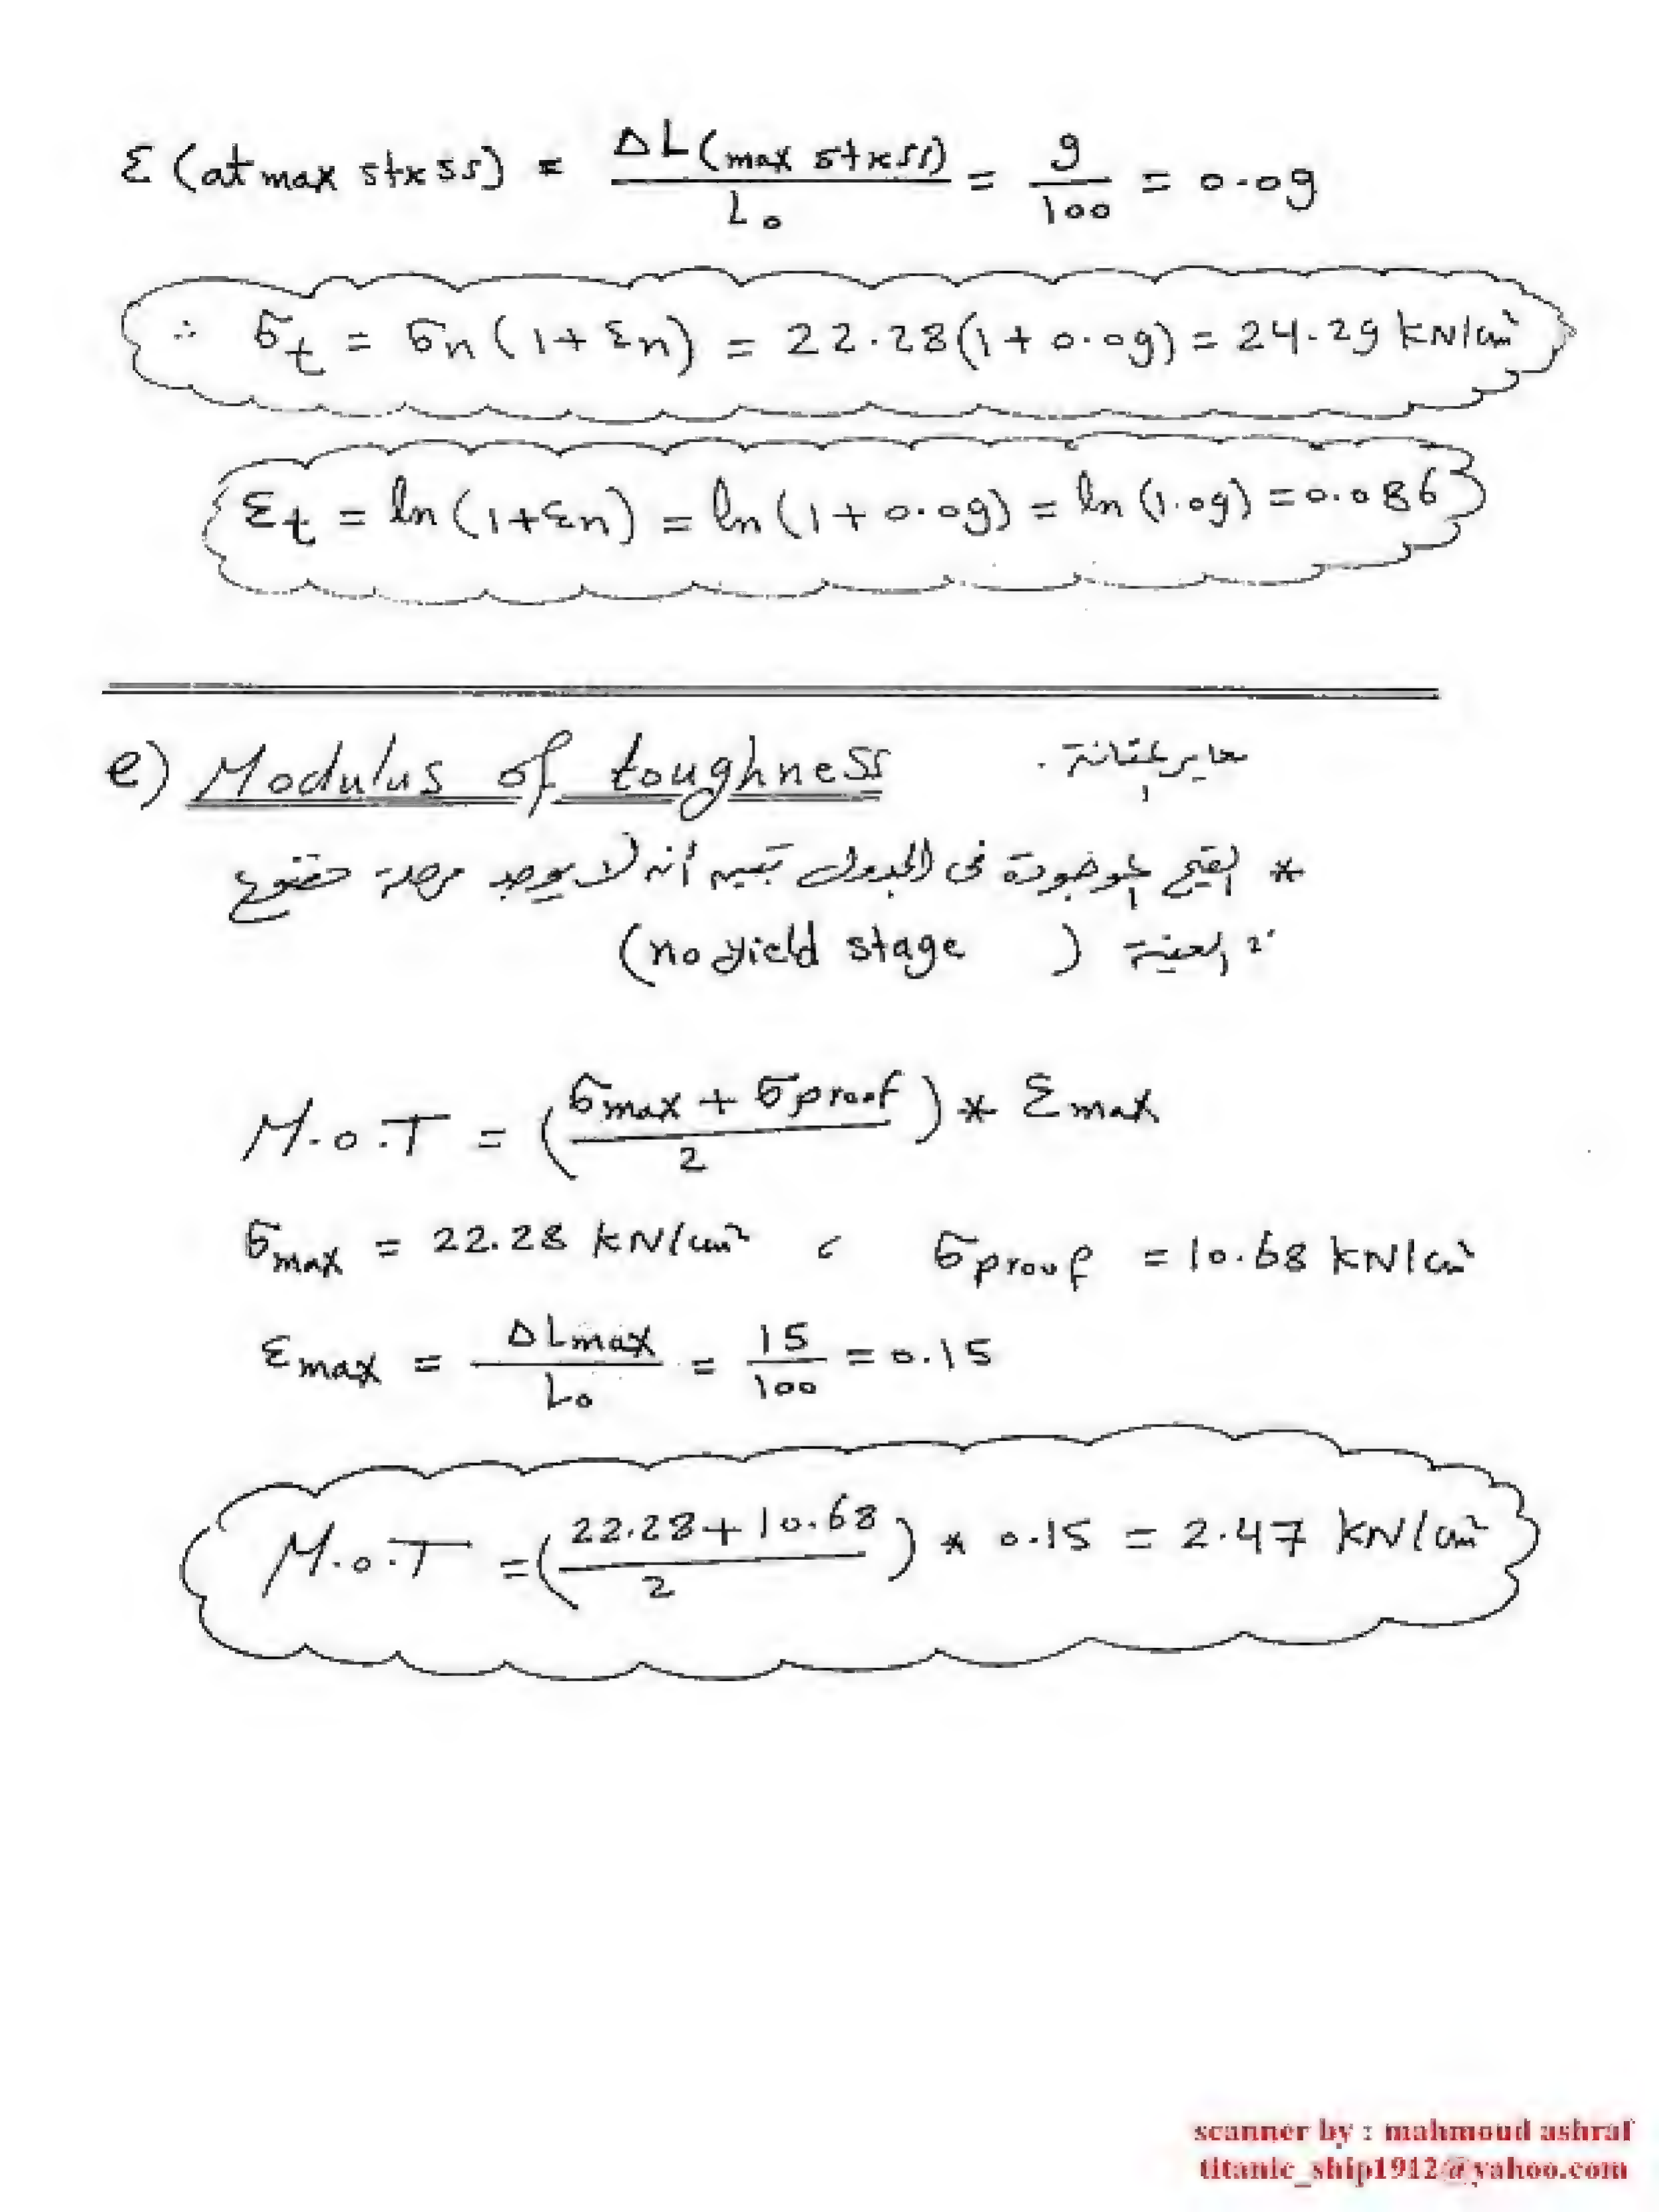 ε (at max stress) = ΔL(max stress) / L₀ = 9/100 = 0.09
∴ σt = σn (1 + εn) = 22.28 (1 + 0.09) = 24.29 kN/cm²
εt = ln (1 + εn) = ln (1 + 0.09) = ln (1.09) = 0.086
e) Modulus of toughness معاير المتانة .
* القيم الموجودة فى الجدول تبين أنه لا يوجد مرحلة خضوع
للعينة (no yield stage)
M.o.T = ((σmax + σproof) / 2) * εmax
σmax = 22.28 kN/cm² ، σproof = 10.68 kN/cm²
εmax = ΔLmax / L₀ = 15/100 = 0.15
M.o.T = ((22.28 + 10.68) / 2) * 0.15 = 2.47 kN/cm²
scanner by : mahmoud ashraf
titanic_ship1912@yahoo.com